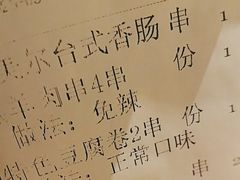 夫尔台式香肠 串 1
羊肉串4串 份 1
做法：免辣
特色豆腐卷2串 份 1
做法：正常口味
串